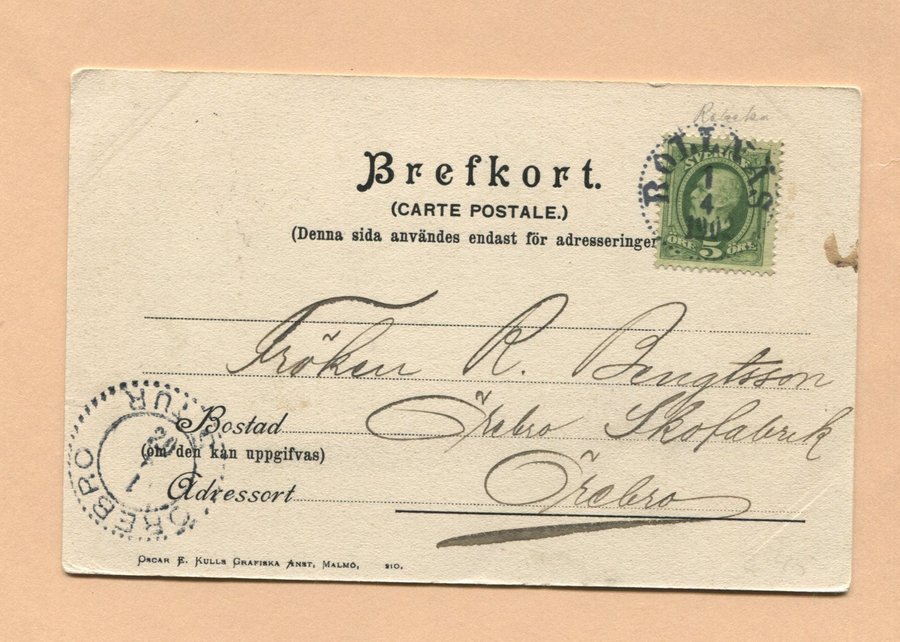 Brefkort.
(CARTE POSTALE.)
(Denna sida användes endast för adresseringen
BOLLNÄS
1
4
SVERIGE
ÖRE 5 ÖRE
Fröken R. Bengtsson
Bostad
Örebro Skofabrik
(om den kan uppgifvas)
Adressort
Örebro
ÖREBRO
TUR
OSCAR E. KULLS GRAFISKA ANST, MALMÖ, 210.